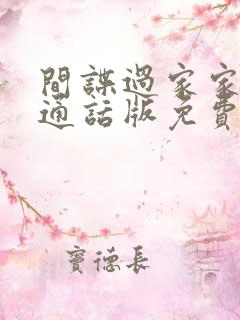 間諜過家家
通話版免費
竇德長